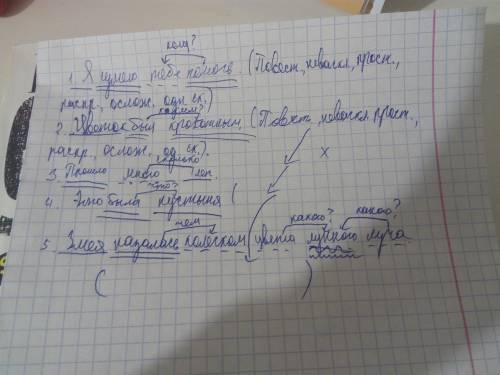 кому?
1. Я сумею тебе помочь (Повест., невоскл., прост.,
распр., ослож. одн. ск.)
каким?
2. Цветок был кро (Повест., невоскл., прост.,
распр., ослож. од. ск.).
сколько
3. Прошло много лет.
что?
4. Это была пустыня (
х
чем какого? какого?
5. Змея казалась колечком цвета лунного луча.
( )